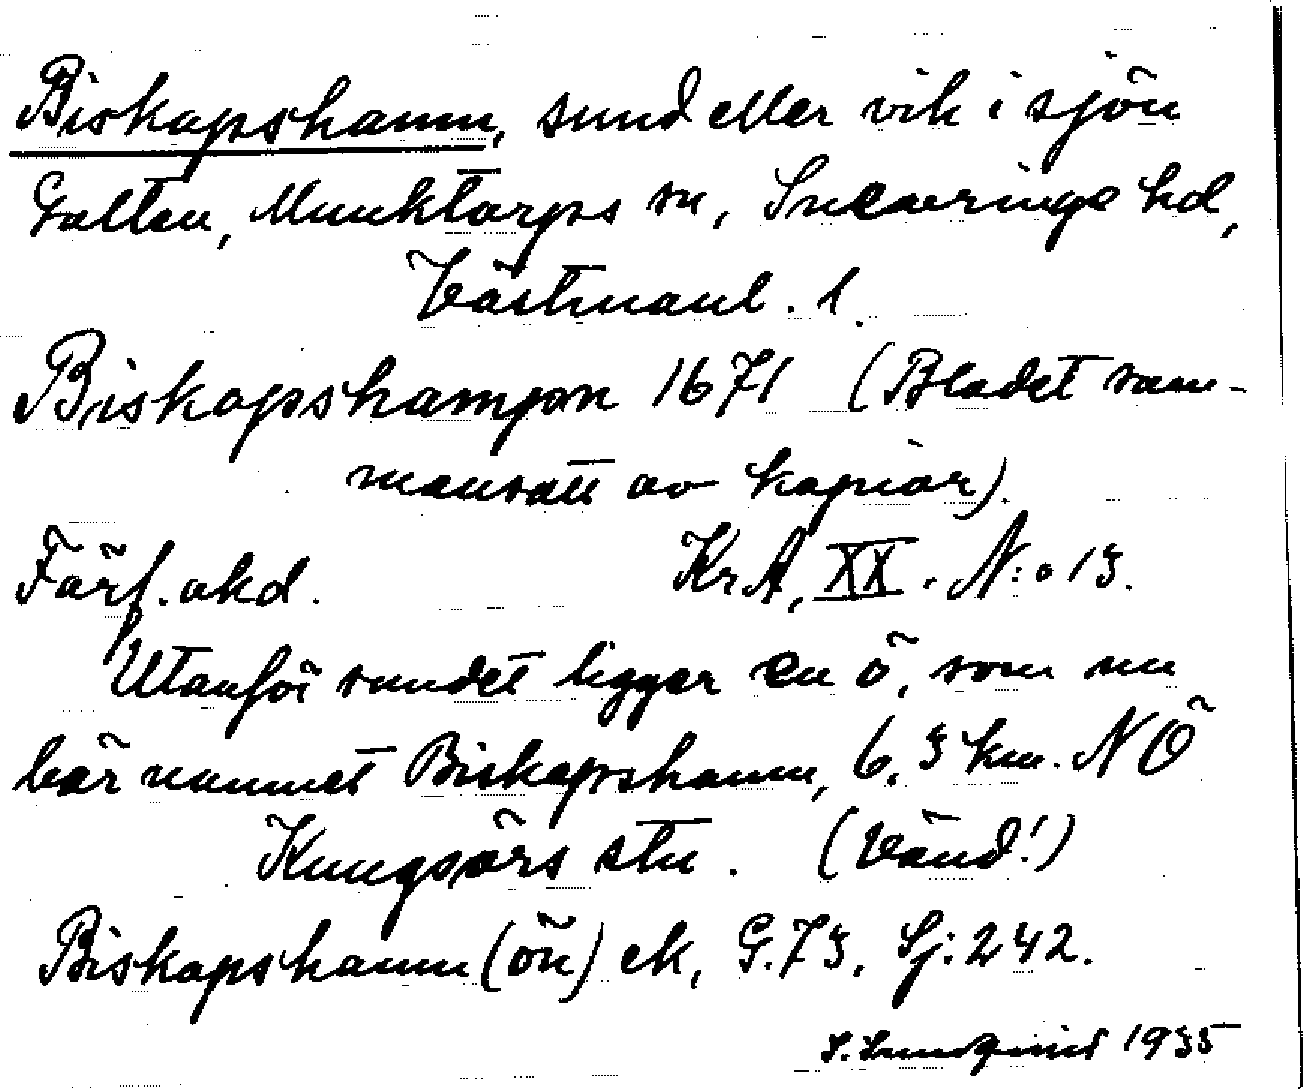 Biskopshamn, sund eller vik i sjön
Galten, Munktorps sn, Snevringe hd,
Västmanl. l.
Biskopshampn 1671 (Bladet sam-
mansatt av kopior).
Förf. okd. KrA, XX. N:o 13.
Utanför sundet ligger en ö, som nu
bär namnet Biskopshamn, 6,3 km. NÖ
Kungsörs stn. (Vänd!)
Biskopshamn (ön) ek, G. 73, Sj: 242.
S. Lundqvist 1935